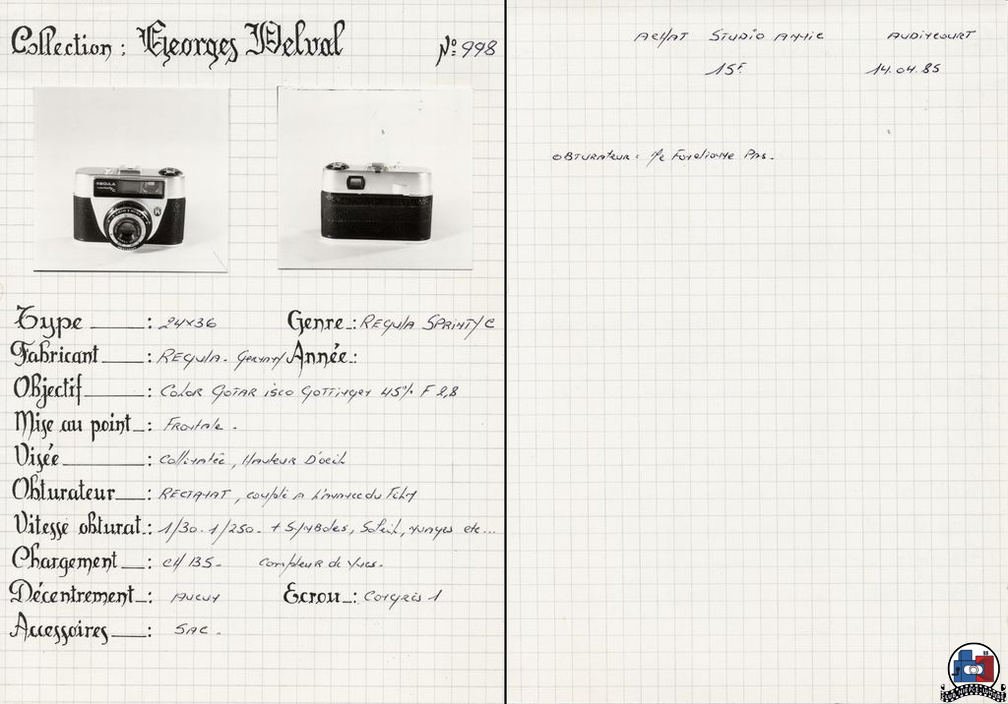 Collection : Georges Delval N° 998
REGULA
Type : 24x36 Genre : REGULA SPRINTY C
Fabricant : REGULA. GERMANY Année :
Objectif : COLOR GOTAR ISCO GOTTINGEN 45% F 2,8
Mise au point : FRONTALE.
Visée : Collimatée, HAUTEUR D'OEIL
Obturateur : , couplé A L'AVANCE DU FILM
Vitesse obturat. : 1/30. 1/250. + SYMBOLES, SOLEIL, NUAGES etc...
Chargement : CH 135. Compteur de Vues.
Décentrement : AUCUN Ecrou : CONGRES 1
Accessoires : SAC.
ACHAT STUDIO ANNIE AUDINCOURT
15F 14.04.85
OBTURATEUR : NE FONCTIONNE PAS.